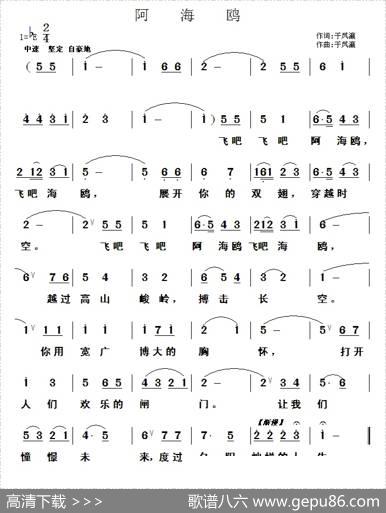 阿 海 鸥
1=♭E 2/4
中速 坚定 自豪地
作词:于凤瀛
作曲:于凤瀛
(5 5 1 - 1 6 6 2 - 2 5 5
4 4 3 1 2 - 1 - 1) 5 5 5 5 6·5 4 3
飞吧 飞吧 阿 海鸥,
2 12 3 1 2 - 1 1 6 6 161 2 3 5 4 3
飞吧 海 鸥, 展开 你的 双 翅, 穿越时
2 - 2 5 5 5 5 6·5 4 3 2 12 3 1
空。 飞吧 飞吧 阿 海鸥 飞吧 海 鸥,
6 7 6 5 4 5 3 2 6 5 4 3 6
越过 高山 峻岭, 搏击 长 空。
1 1 1 1 2 1 7 1 5 - 5 6 7
你用 宽广 博大的 胸 怀, 打开
1 3 6 5 4 3 2 1 2 - 2 5 6
人们 欢乐的 闸 门。 让我们
【渐慢】
5 3 2 1 4·5 6 7 2 2 2 3
憧憬 未 来,度过
高清下载 >>>
歌谱八六 www.gepu86.com